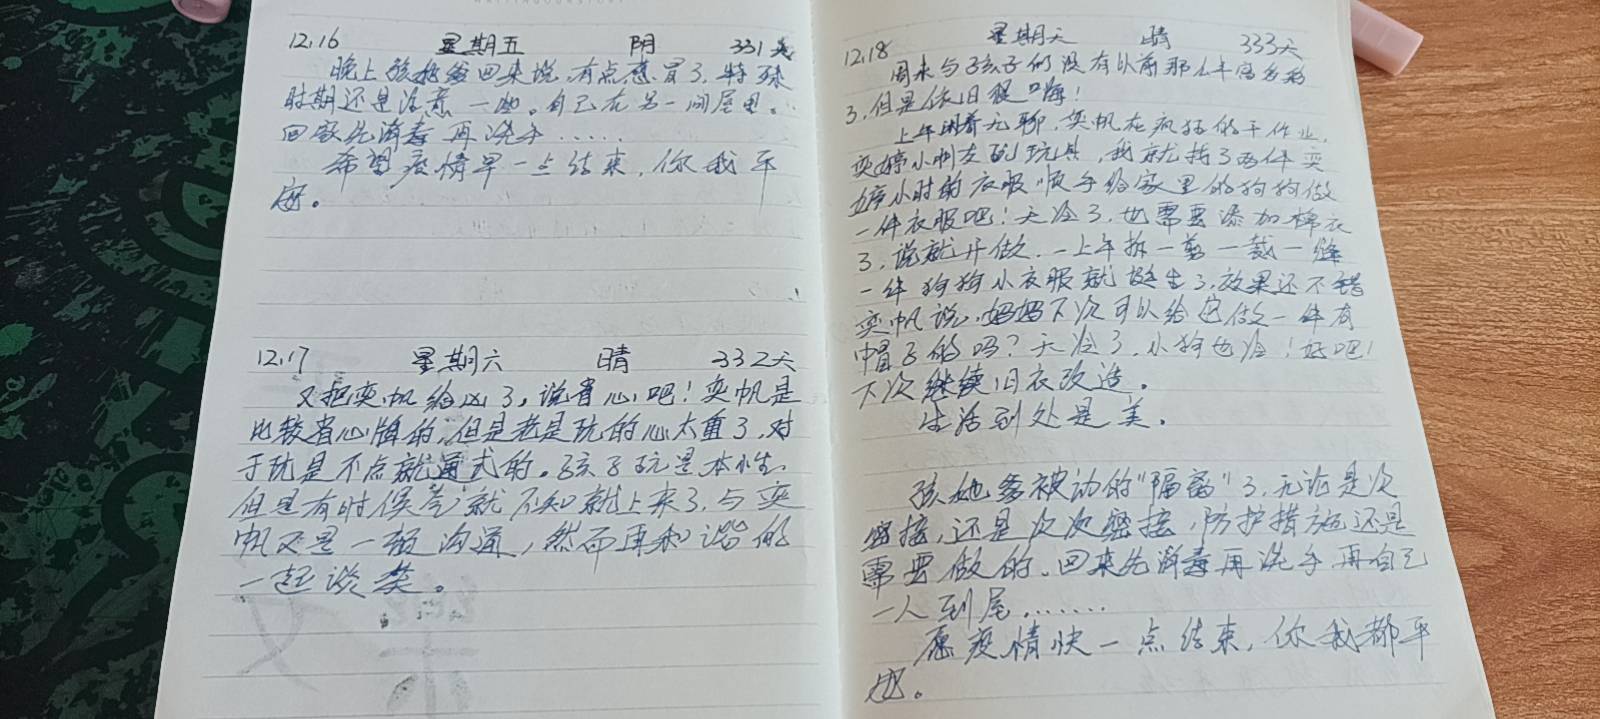 12.16 星期五 阴 331天
晚上孩她爸回来说,有点感冒了,特殊
时期还是注意一些。自己在另一间屋里。
回家先消毒再洗手……
希望疫情早一点结束,你我平
安。
12.17 星期六 晴 332天
又把奕帆给凶了,说省心吧!奕帆是
比较省心牌的,但是老是玩的心太重了,对
于玩是不点就通式的。孩子玩是本性,
但是有时候气就不知就上来了,与奕
帆又是一顿沟通,然而再和谐的
一起谈笑。
12.18 星期天 晴 333天
周末与孩子们没有以前那么丰富多彩
了,但是依旧很嗨!
上午闲着无聊,奕帆在疯狂的干作业,
奕婷小朋友玩玩具,我就找了两件奕
婷小时的衣服顺手给家里的狗狗做
一件衣服吧!天冷了,也需要添加棉衣
了,说就开做,一上午拆一剪一裁一缝
一件狗狗小衣服就诞生了,效果还不错
奕帆说,妈妈下次可以给它做一件有
帽子的吗?天冷了,小狗也冷!好吧!
下次继续旧衣改造。
生活到处是美。
孩她爸被动的"隔离"了,无论是次
密接,还是次次密接,防护措施还是
需要做的。回来先消毒再洗手再自己
一人到屋……
愿疫情快一点结束,你我都平
安。